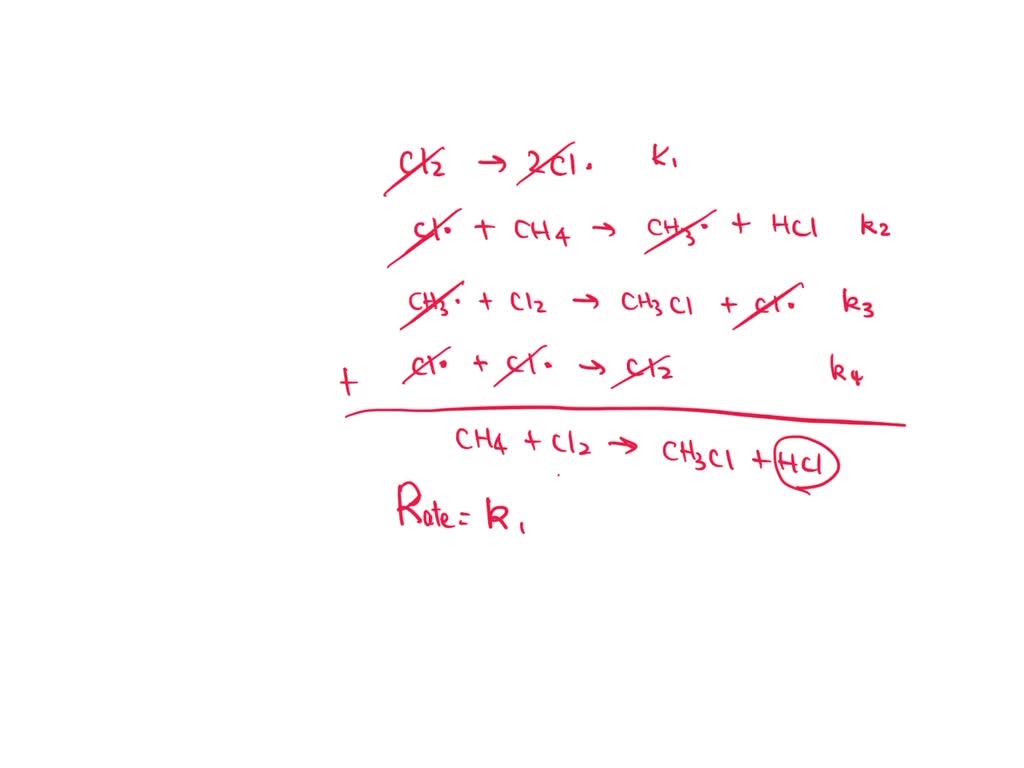 Cl2 → 2Cl· k1
Cl· + CH4 → CH3· + HCl k2
CH3· + Cl2 → CH3Cl + Cl· k3
+ Cl· + Cl· → Cl2 k4
CH4 + Cl2 → CH3Cl + HCl
Rate = k1